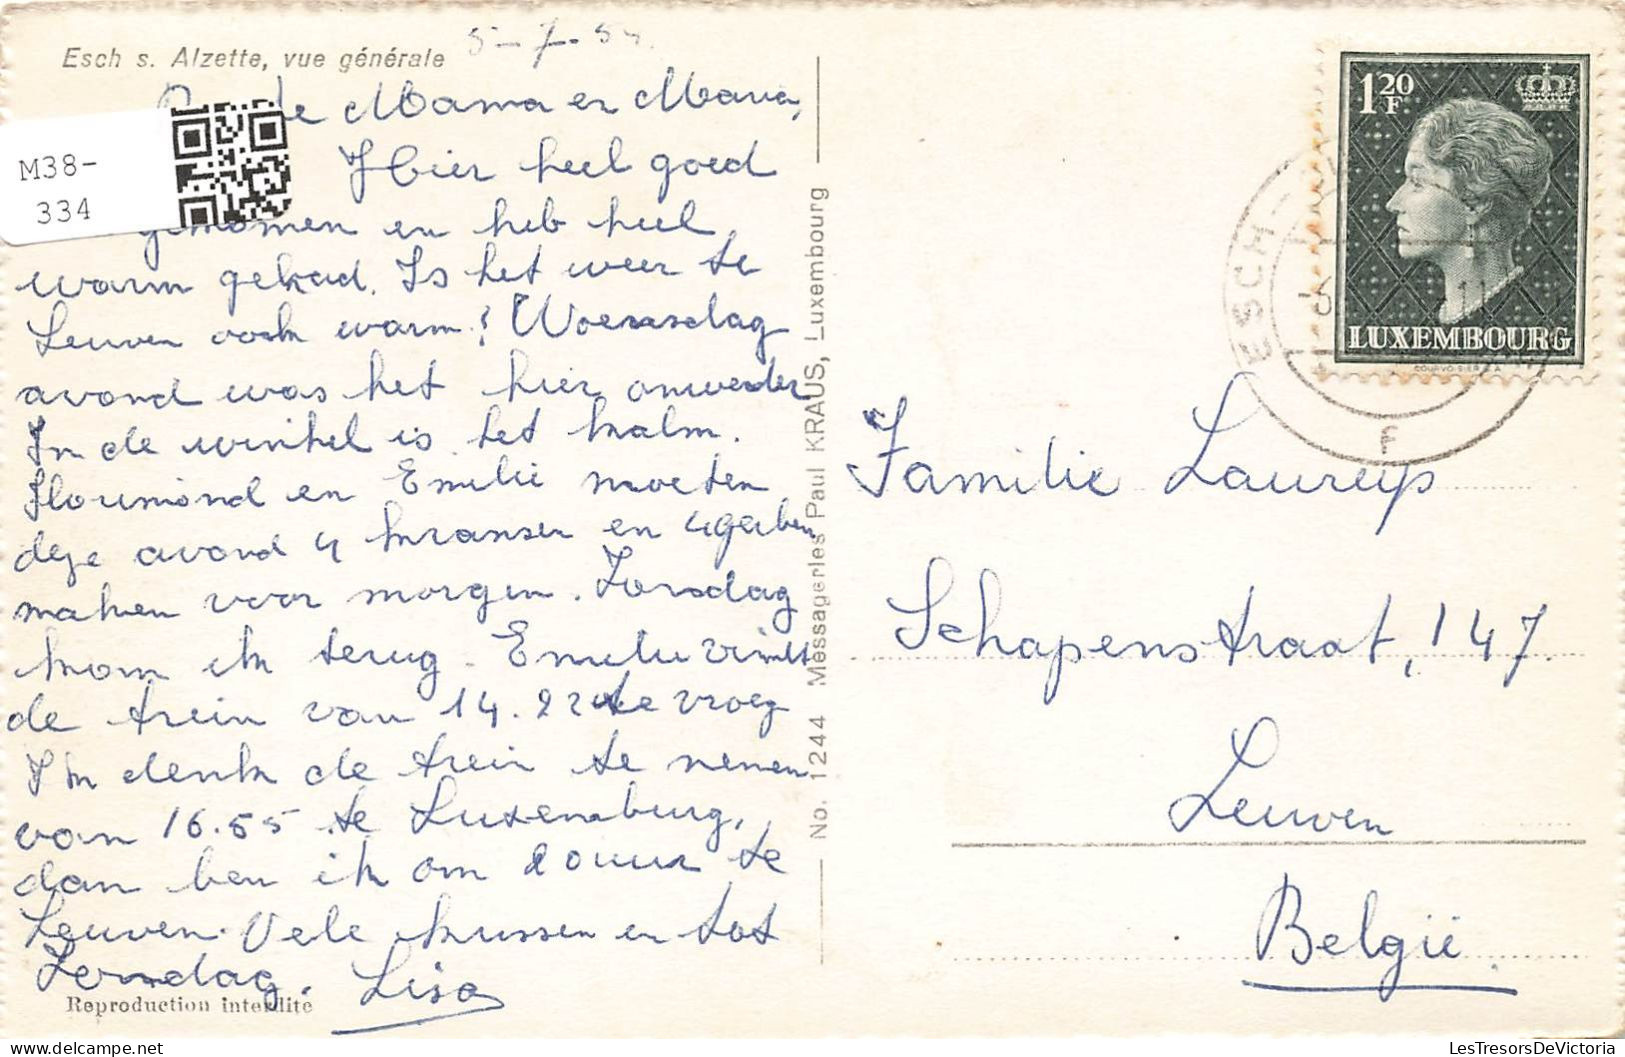 Esch s. Alzette, vue générale
5-7-54.
Mama en Maria,
Hier heel goed
en heb heel
warm gehad. Is het weer te
Leuven ook warm? Woensdag
avond was het hier onweder
In de winkel is het kalm.
en Emilie moeten
deze avond 4 kransen en 4 gerben
maken voor morgen. Zondag
kom ik terug. Emilie vindt
de trein van 14.22 te vroeg
Ik denk de trein te nemen
van 16.55 te Luxemburg,
dan ben ik om te
Leuven. Vele kussen en tot
Zondag. Lisa
Reproduction interdite
M38-
334
No. 1244 Messageries Paul KRAUS, Luxembourg
1.20 F
LUXEMBOURG
COURVOISIER S.A.
ESCH-
Familie Laureys
Schapenstraat, 147.
Leuven
België.
LesTresorsDeVictoria
delcampe.net